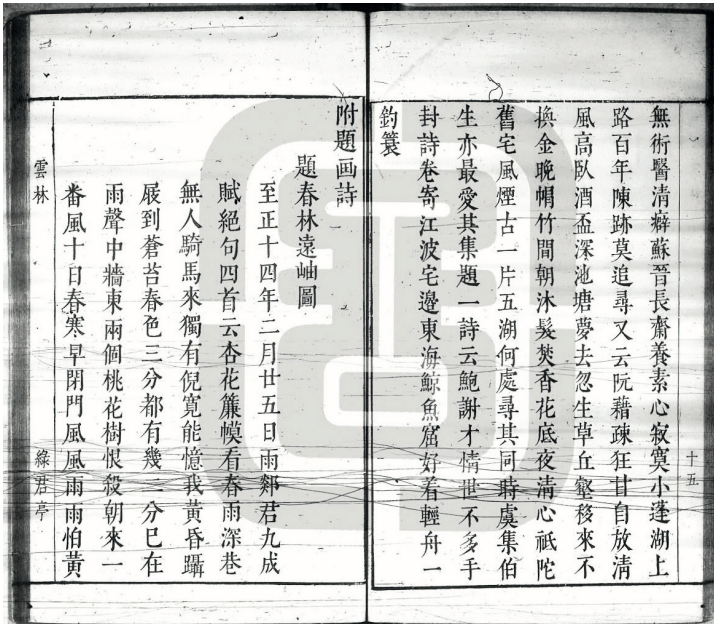 無術醫清癖蘇晉長齋養素心寂寞小蓬湖上
路百年陳跡莫追尋又云阮藉疎狂甘自放清
風高臥酒盃深池塘夢去忽生草丘壑移來不
換金晚帽竹間朝沐髮焚香花底夜清心祇陀
舊宅風煙古一片五湖何處尋其同時虞集伯
生亦最愛其集題一詩云鮑謝才情世不多手
封詩卷寄江波宅邊東海鯨魚窟好着輕舟一
釣簑
十五
附題画詩
題春林遠岫圖
至正十四年二月廿五日雨郯君九成
賦絕句四首云杏花簾幙看春雨深巷
無人騎馬來獨有倪寬能憶我黃昏躡
屐到蒼苔春色三分都有幾二分已在
雨聲中牆東兩個桃花樹恨殺朝來一
番風十日春寒早閉門風風雨雨怕黃
雲林
綠君亭